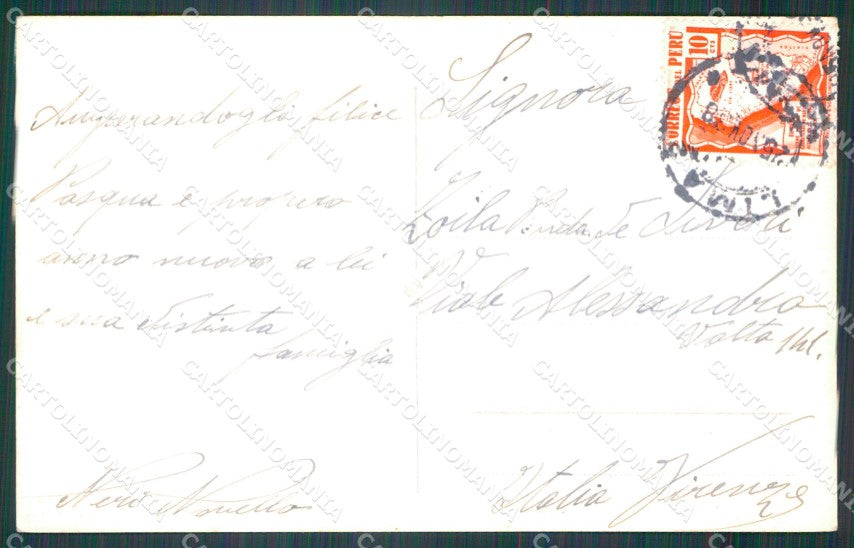 Augurandogli filice
Pasqua e propero
anno nuovo a lei
e sua distinta
famiglia
Neri Novello
Signora
Zoila Vinda. De
Viale Alessandro
Volta
Italia Firenze
CORREOS DEL PERU
10
CTS
LIMA
CARTOLINOMANIA